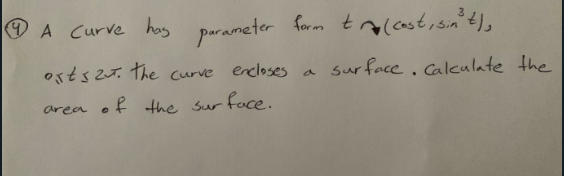 ④ A curve has parameter form t ↷ (cost, sin³t),
0≤t≤2π. The curve encloses a surface. Calculate the
area of the surface.